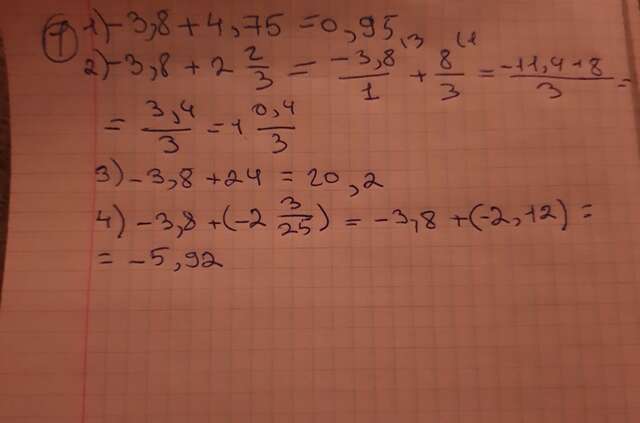 7 1) -3,8 + 4,75 = 0,95
2) -3,8 + 2 2/3 = -3,8 (3 / 1 + 8 (1 / 3 = -11,4+8 / 3 =
= 3,4/3 = 1 0,4/3
3) -3,8 + 24 = 20,2
4) -3,8 + (-2 3/25) = -3,8 + (-2,12) =
= -5,92